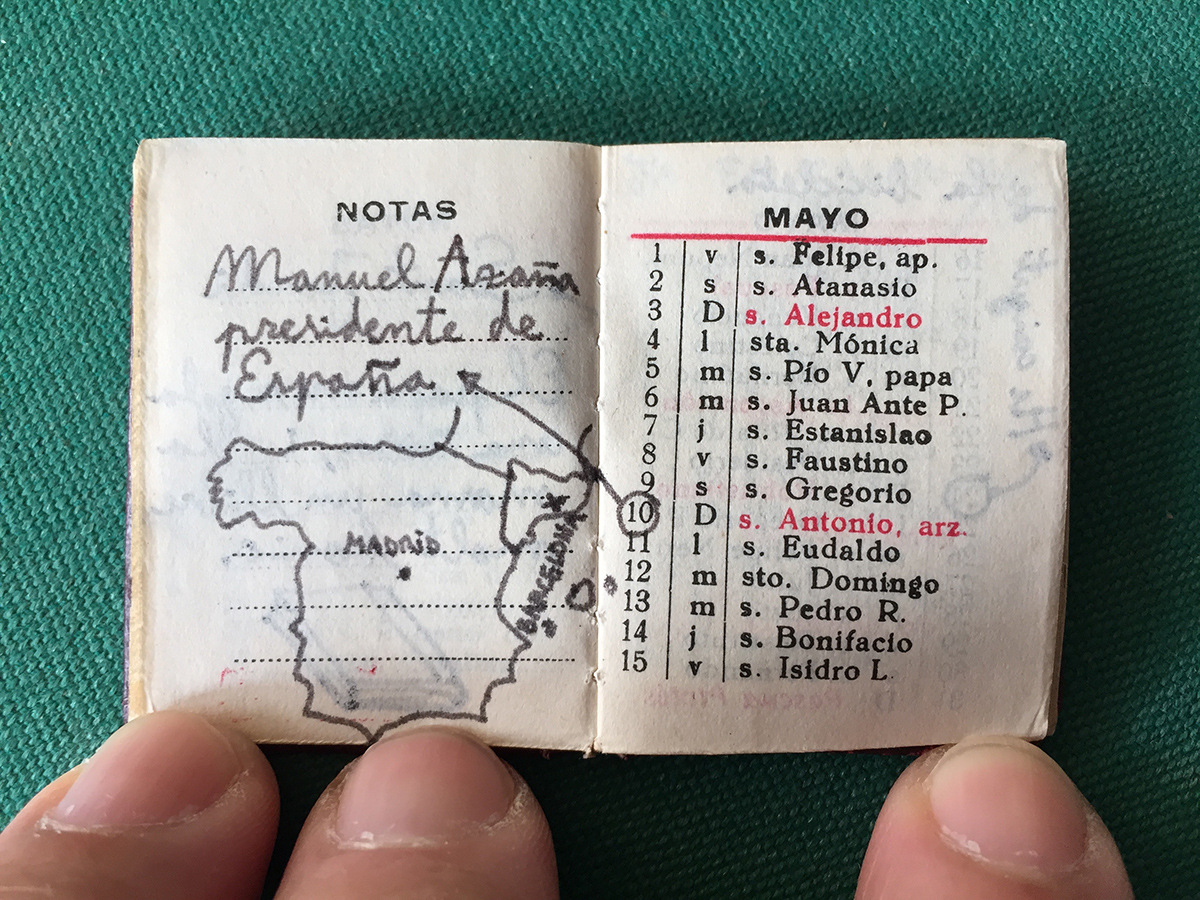 NOTAS
Manuel Azaña
presidente de
España
MADRID
BARCELONA
MAYO
1 v s. Felipe, ap.
2 s s. Atanasio
3 D s. Alejandro
4 l sta. Mónica
5 m s. Pío V, papa
6 m s. Juan Ante P.
7 j s. Estanislao
8 v s. Faustino
9 s s. Gregorio
10 D s. Antonio, arz.
11 l s. Eudaldo
12 m sto. Domingo
13 m s. Pedro R.
14 j s. Bonifacio
15 v s. Isidro L.